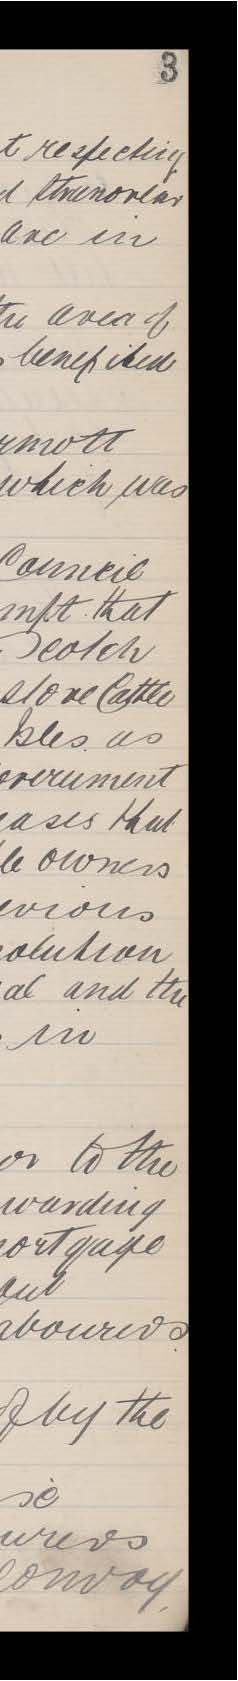 3
t respecting
d
are in
the area of
benefited
rmott
which was
Council
mpt that
Scotch
store Cattle
Isles as
overnment
eases that
le owners
evious
solution
al and the
in
or to the
warding
mortgage
out
abourers
by the
se
urers
Conroy.